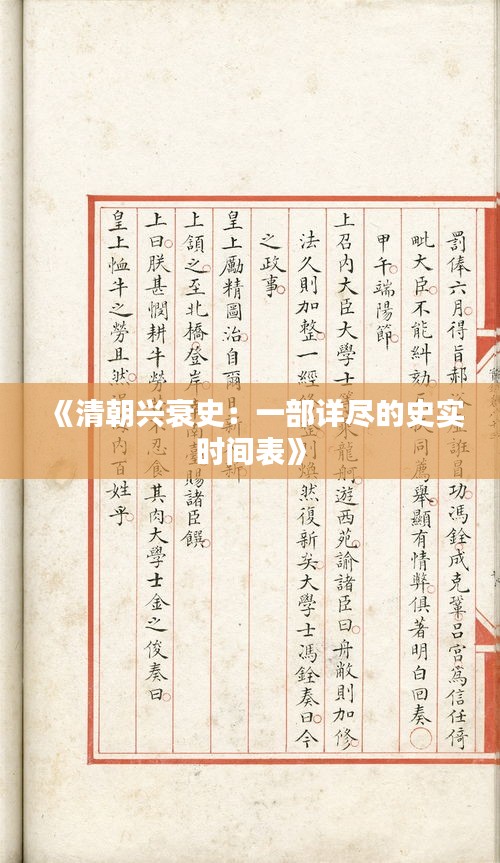 《清朝兴衰史：一部详尽的史实
时间表》
罰俸六月得旨郝冒功馮銓成克鞏呂宮爲信任倚
毗大臣不能糾劾同薦舉顯有情弊俱著明白回奏○
甲午端陽節
上召内大臣大學士龍舸遊西苑諭諸臣曰舟敝則加修
法久則加整一經煥然復新矣大學士馮銓奏曰今
之政事
皇上勵精圖治自爾日新
上頷之至北橋登岸南臺賜諸臣饌
上曰朕甚憫耕牛勞忍食其肉大學士金之俊奏曰
皇上恤牛之勞且然内百姓乎